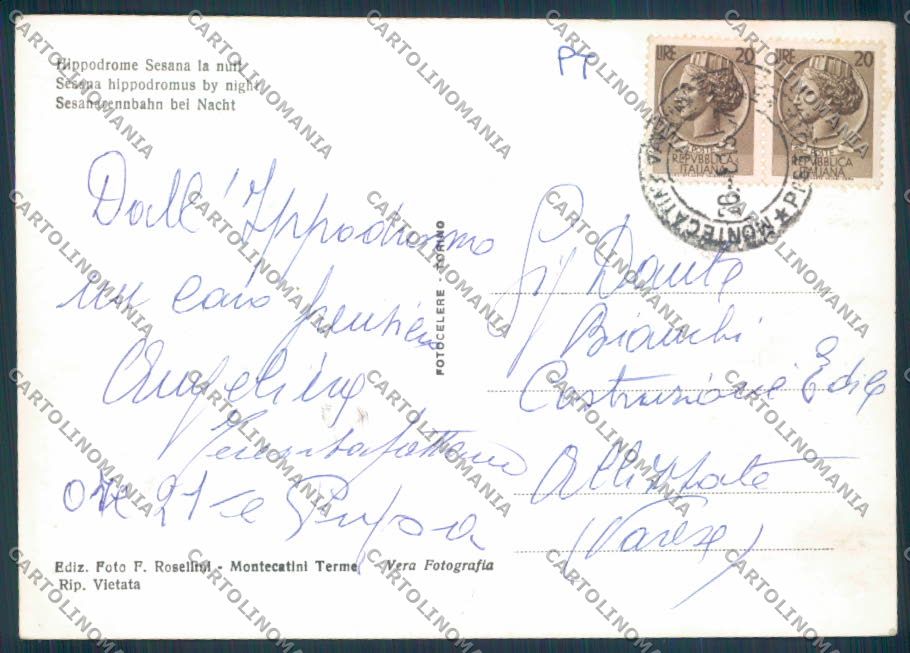 Hippodrome Sesana la nuit
Sesana hippodromus by night
Sesanarennbahn bei Nacht
PT
LIRE 20
POSTE
REPVBBLICA
ITALIANA
LIRE 20
POSTE
REPVBBLICA
ITALIANA
MONTECATINI
Dall'Ippodromo
un caro pensiero
Angelina
ore 21 e Pupa
FOTOCELERE - TORINO
Sig Dante
Bianchi
Costruzioni Edile
Albizzate
(Varese)
Ediz. Foto F. Rosellini - Montecatini Terme Vera Fotografia
Rip. Vietata
CARTOLINOMANIA